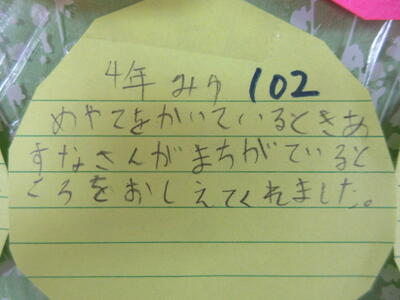 4年 みゆ 102
めやてをかいているときあ
すなさんがまちがているとこ
ころをおしえてくれました。